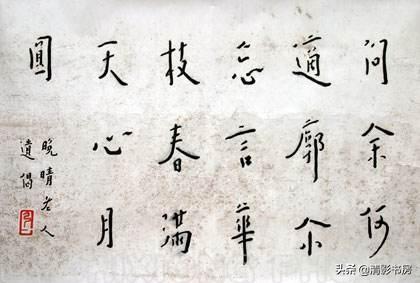 問余何
適廓尒
忘言華
枝春滿
天心月
圓
晚晴老人
遺偈
头条 @影书房